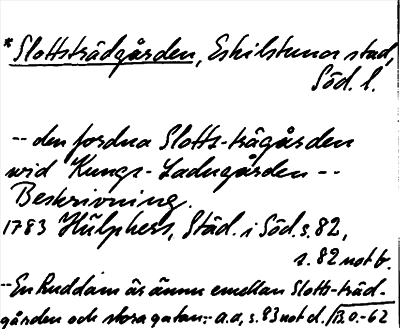 * Slottsträdgården, Eskilstuna stad,
Söd. l.
-- den fordna Slotts-trägården
wid Kungs-Ladugården --
Beskrivning.
1783 Hülphers, Städ. i Söd. s. 82,
s. 82 not b.
-- En Ruddam är ännu emellan Slotts-träd-
gården och stora gatan:- a.a, s. 83 not d. /B.O.-62